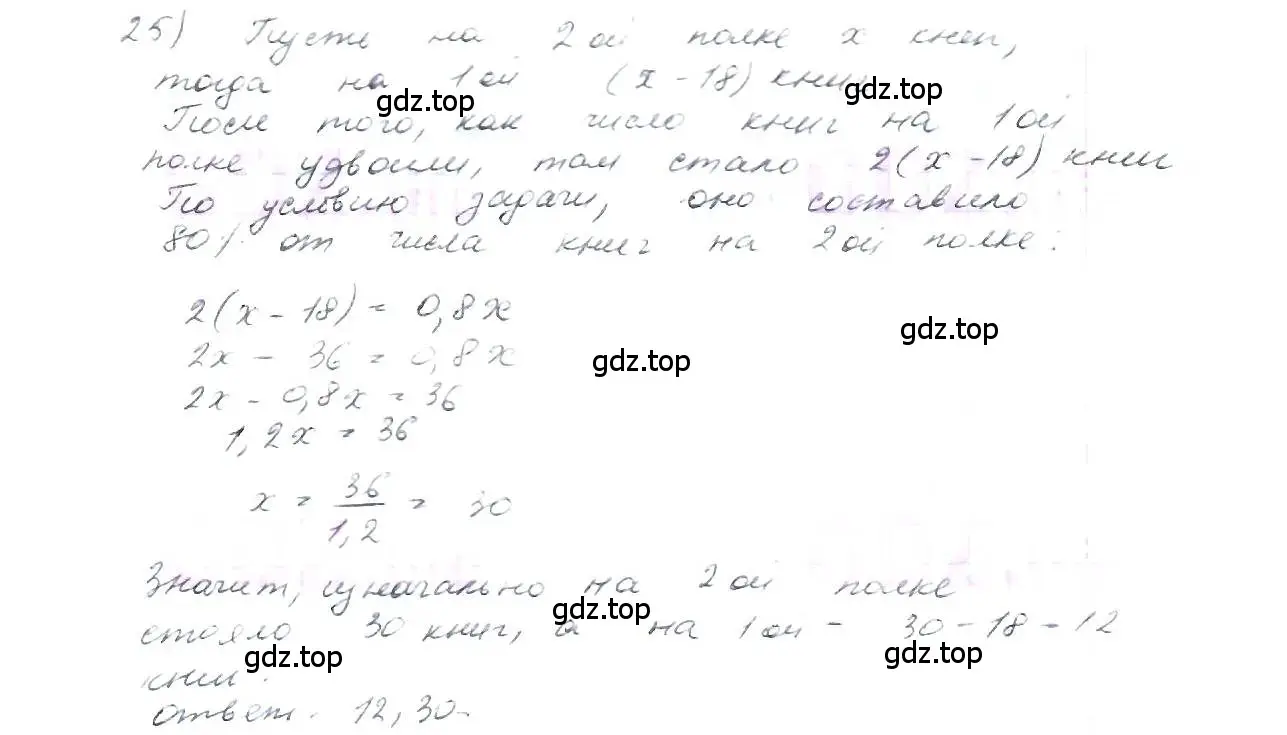 25) Пусть на 2ой полке x книг,
тогда на 1ой (x - 18) книг
gdz.top gdz.top
После того, как число книг на 1ой
полке удвоили, там стало 2(x - 18) книг
По условию задачи, оно составило
80% от числа книг на 2ой полке:
2(x - 18) = 0,8x
gdz.top
2x - 36 = 0,8x
gdz.top
2x - 0,8x = 36
1,2x = 36
x = 36/1,2 = 30
Значит, изначально на 2ой полке
gdz.top
стояло 30 книг, а на 1ой - 30 - 18 = 12
gdz.top gdz.top
книг.
Ответ: 12, 30.